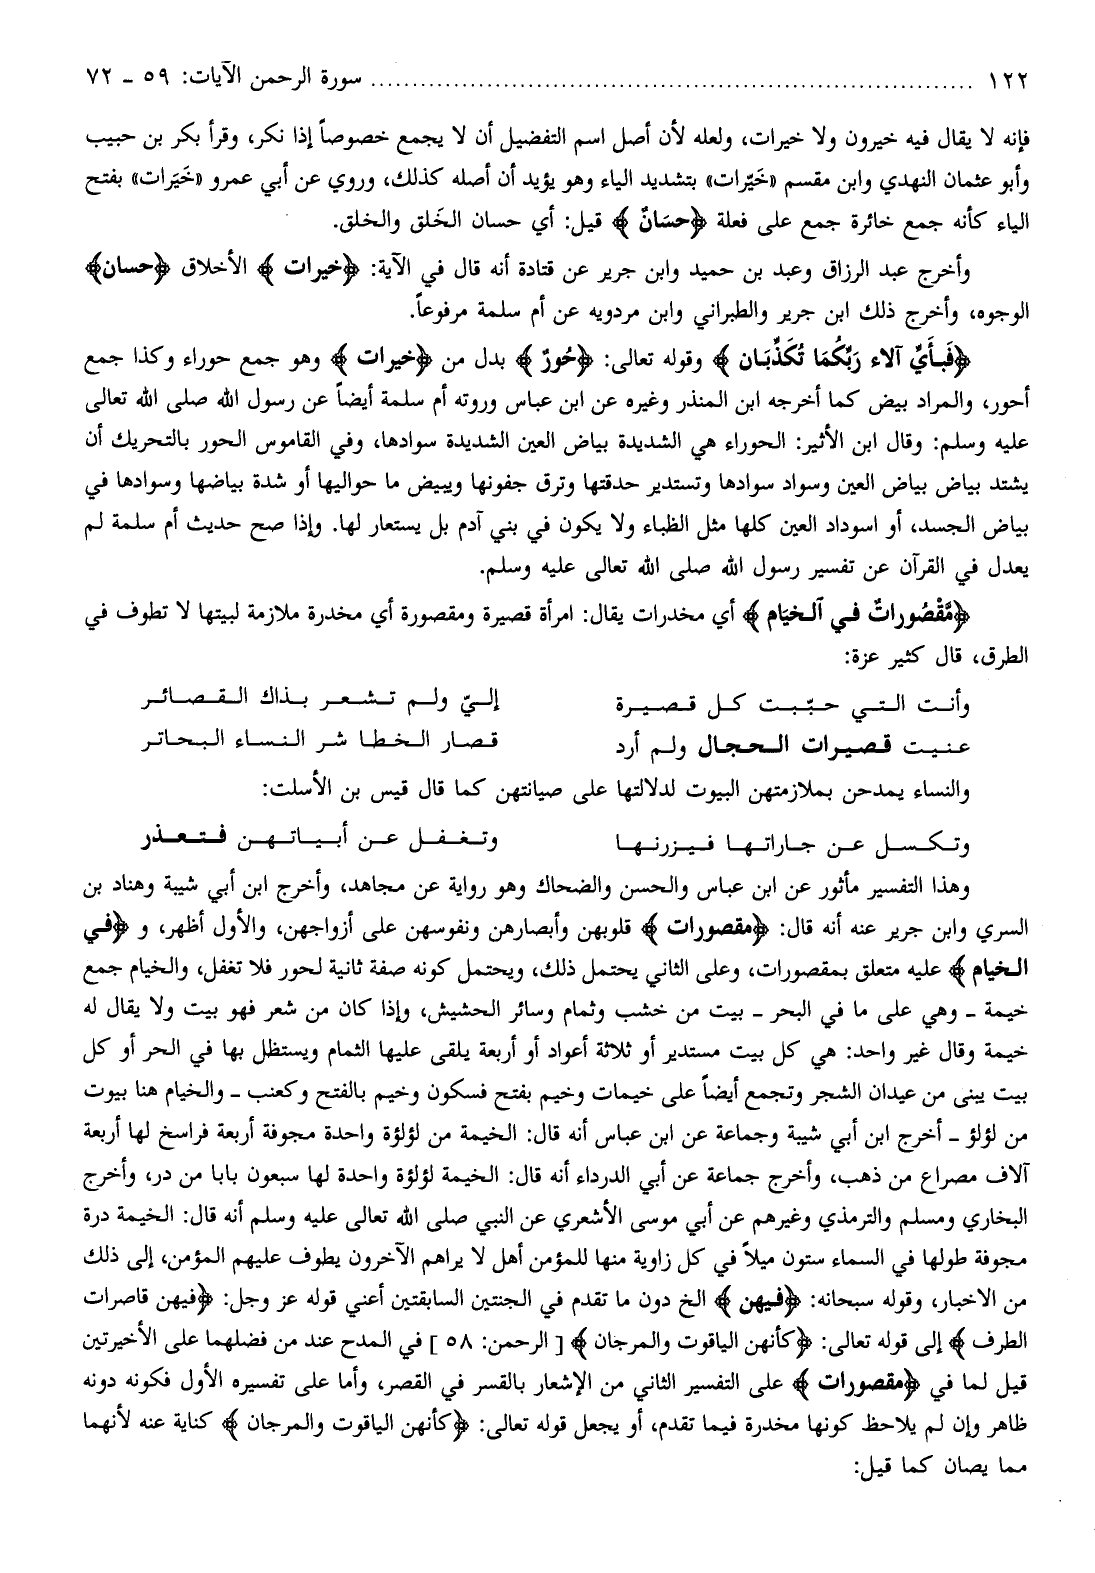 ١٢٢ ........................................ سورة الرحمن الآيات: ٥٩ ـ ٧٢
فإنه لا يقال فيه خيرون ولا خيرات، ولعله لأن أصل اسم التفضيل أن لا يجمع خصوصاً إذا نكر، وقرأ بكر بن حبيب
وأبو عثمان النهدي وابن مقسم «خَيّرات» بتشديد الياء وهو يؤيد أن أصله كذلك، وروي عن أبي عمرو «خَيَرات» بفتح
الياء كأنه جمع خائرة جمع على فعلة ﴿حسَانٌ﴾ قيل: أي حسان الخَلق والخلق.
وأخرج عبد الرزاق وعبد بن حميد وابن جرير عن قتادة أنه قال في الآية: ﴿خيرات﴾ الأخلاق ﴿حسان﴾
الوجوه، وأخرج ذلك ابن جرير والطبراني وابن مردويه عن أم سلمة مرفوعاً.
﴿فَبأَيِّ آلاء رَبِّكُمَا تُكَذِّبَان﴾ وقوله تعالى: ﴿حُورٌ﴾ بدل من ﴿خيرات﴾ وهو جمع حوراء وكذا جمع
أحور، والمراد بيض كما أخرجه ابن المنذر وغيره عن ابن عباس وروته أم سلمة أيضاً عن رسول الله صلى الله تعالى
عليه وسلم: وقال ابن الأثير: الحوراء هي الشديدة بياض العين الشديدة سوادها، وفي القاموس الحور بالتحريك أن
يشتد بياض بياض العين وسواد سوادها وتستدير حدقتها وترق جفونها ويبيض ما حواليها أو شدة بياضها وسوادها في
بياض الجسد، أو اسوداد العين كلها مثل الظباء ولا يكون في بني آدم بل يستعار لها. وإذا صح حديث أم سلمة لم
يعدل في القرآن عن تفسير رسول الله صلى الله تعالى عليه وسلم.
﴿مَّقْصُوراتٌ في ٱلخيَام﴾ أي مخدرات يقال: امرأة قصيرة ومقصورة أي مخدرة ملازمة لبيتها لا تطوف في
الطرق، قال كثير عزة:
وأنت التي حبّبت كل قصيرة إليّ ولم تشعر بذاك القصائر
عنيت قصيرات الحجال ولم أرد قصار الخطا شر النساء البحاتر
والنساء يمدحن بملازمتهن البيوت لدلالتها على صيانتهن كما قال قيس بن الأسلت:
وتكسل عن جاراتها فيزرنها وتغفل عن أبياتهن فتعذر
وهذا التفسير مأثور عن ابن عباس والحسن والضحاك وهو رواية عن مجاهد، وأخرج ابن أبي شيبة وهناد بن
السري وابن جرير عنه أنه قال: ﴿مقصورات﴾ قلوبهن وأبصارهن ونفوسهن على أزواجهن، والأول أظهر، و ﴿في
الخيام﴾ عليه متعلق بمقصورات، وعلى الثاني يحتمل ذلك، ويحتمل كونه صفة ثانية لحور فلا تغفل، والخيام جمع
خيمة ـ وهي على ما في البحر ـ بيت من خشب وثمام وسائر الحشيش، وإذا كان من شعر فهو بيت ولا يقال له
خيمة وقال غير واحد: هي كل بيت مستدير أو ثلاثة أعواد أو أربعة يلقى عليها الثمام ويستظل بها في الحر أو كل
بيت يبنى من عيدان الشجر وتجمع أيضاً على خيمات وخيم بفتح فسكون وخيم بالفتح وكعنب ـ والخيام هنا بيوت
من لؤلؤ ـ أخرج ابن أبي شيبة وجماعة عن ابن عباس أنه قال: الخيمة من لؤلؤة واحدة مجوفة أربعة فراسخ لها أربعة
آلاف مصراع من ذهب، وأخرج جماعة عن أبي الدرداء أنه قال: الخيمة لؤلؤة واحدة لها سبعون بابا من در، وأخرج
البخاري ومسلم والترمذي وغيرهم عن أبي موسى الأشعري عن النبي صلى الله تعالى عليه وسلم أنه قال: الخيمة درة
مجوفة طولها في السماء ستون ميلاً في كل زاوية منها للمؤمن أهل لا يراهم الآخرون يطوف عليهم المؤمن، إلى ذلك
من الاخبار، وقوله سبحانه: ﴿فيهن﴾ الخ دون ما تقدم في الجنتين السابقتين أعني قوله عز وجل: ﴿فيهن قاصرات
الطرف﴾ إلى قوله تعالى: ﴿كأنهن الياقوت والمرجان﴾ [الرحمن: ٥٨] في المدح عند من فضلهما على الأخيرتين
قيل لما في ﴿مقصورات﴾ على التفسير الثاني من الإشعار بالقسر في القصر، وأما على تفسيره الأول فكونه دونه
ظاهر وإن لم يلاحظ كونها مخدرة فيما تقدم، أو يجعل قوله تعالى: ﴿كأنهن الياقوت والمرجان﴾ كناية عنه لأنهما
مما يصان كما قيل: